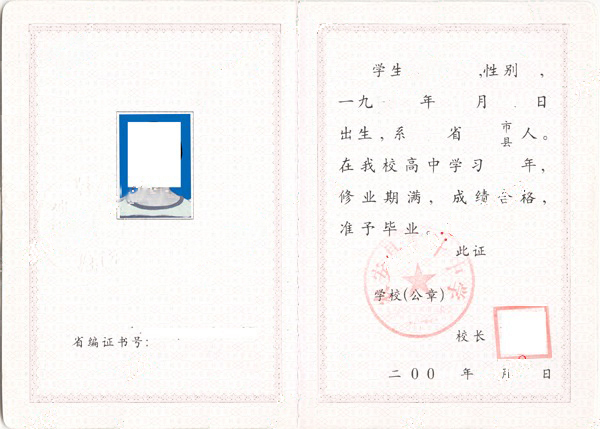 省编证书号:
学生 ,性别 ,
一九 年 月 日
出生,系 省 市县 人。
在我校高中学习 年,
修业期满,成绩合格,
准予毕业。
此证
学校(公章)
校长
二〇〇 年 月 日